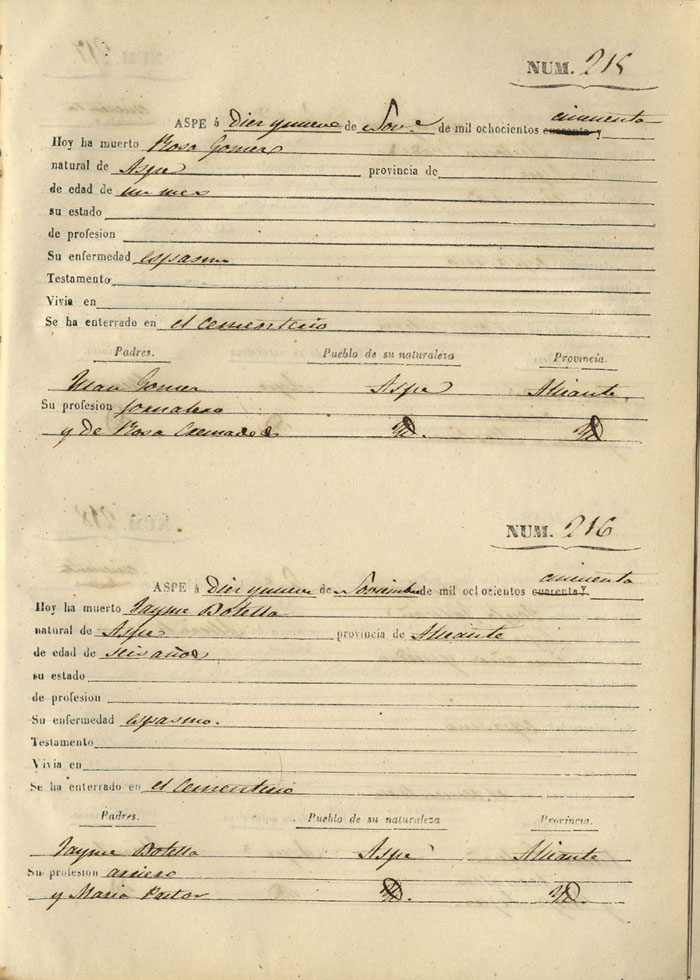 NUM. 215
cincuenta
ASPE á Diez y nueve de Nov.e de mil ochocientos cuarenta y
Hoy ha muerto Rosa Gomez
natural de Aspe provincia de
de edad de un mes
su estado
de profesion
Su enfermedad espasmo
Testamento
Vivia en
Se ha enterrado en el cementerio
Padres. Pueblo de su naturaleza Provincia.
Juan Gomez Aspe Alicante
Su profesion jornalero
y de Rosa Cremades Yd. Yd.
NUM. 216
cincuenta
ASPE á Diez y nueve de Noviembre de mil oclosientos cuarenta y
Hoy ha muerto Jayme Botella
natural de Aspe provincia de Alicante
de edad de seis años
su estado
de profesion
Su enfermedad espasmo.
Testamento
Vivia en
Se ha enterrado en el cementerio
Padres. Pueblo de su naturaleza Provincia.
Jayme Botella Aspe Alicante
Su profesion arriero
y Maria Pastor Yd. Yd.